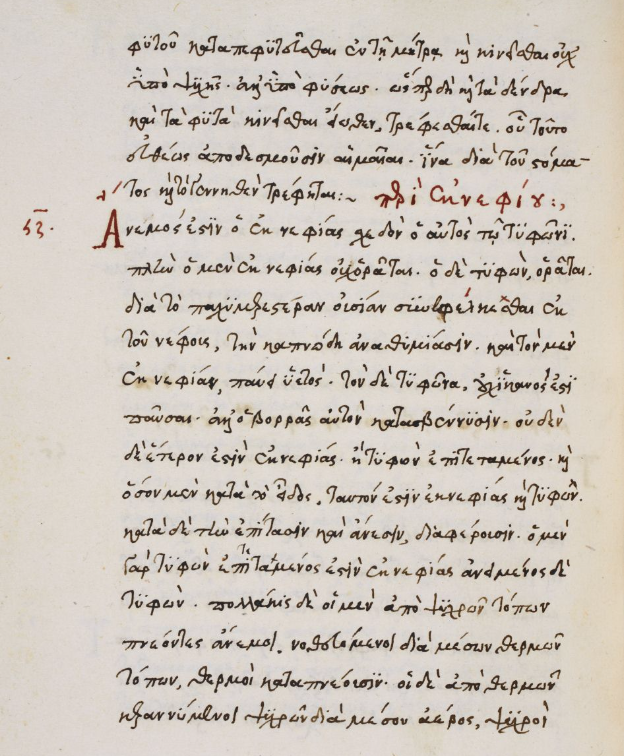 φυτοῦ καταπεφυτεῦσθαι ἐν τῇ μήτρᾳ καὶ κινεῖσθαι οὐχ
ὑπὸ ψυχῆς· ἀλλ' ὑπὸ φύσεως· ὥσπερ δὴ καὶ τὰ δένδρα,
καὶ τὰ φυτὰ κινεῖσθαι ἔξωθεν, τρέφεσθαί τε. οὗ τοῦτο
εὐθέως ἀποδεσμοῦσιν αἱ μαῖαι. ἵνα διὰ τοῦ στόμα-
τος καὶ τὸ γεννηθὲν τρέφηται:~ περὶ ἐκνεφίου:,
νζ. Ἄνεμός ἐστιν ὁ ἐκνεφίας σχεδὸν ὁ αὐτὸς τῷ τυφῶνι.
πλὴν ὁ μὲν ἐκνεφίας οὐχ ὁρᾶται. ὁ δὲ τυφὼν, ὁρᾶται.
διὰ τὸ παχυμερεστέραν οὐσίαν συνεφέλκεσθαι ἐκ
τοῦ νέφους, τὴν καπνώδη ἀναθυμίασιν. καὶ τὸν μὲν
ἐκνεφίαν, παύει ὑετός. τὸν δὲ τυφῶνα, οὐχ ἱκανός ἐστι
παῦσαι. ἀλλ' ὁ βορρᾶς αὐτὸν κατασβέννυσιν. οὐδὲν
δὲ ἕτερον ἐστὶν ἐκνεφίας. ἢ τυφὼν ἐπιτεταμένος. καὶ
ὅσον μὲν κατὰ τὸ εἶδος, ταυτόν ἐστιν ἐκνεφίας καὶ τυφῶν.
κατὰ δὲ τὴν ἐπίτασιν καὶ ἄνεσιν, διαφέρουσιν. ὁ μὲν
γὰρ τυφὼν ἐπιτεταμένος ἐστὶν ἐκνεφίας ἀνειμένος δὲ
τυφών. πολλάκις δὲ οἱ μὲν ἀπὸ ψυχρῶν τόπων
πνέοντες ἄνεμοι, νοθευόμενοι διὰ μέσων θερμῶν
τόπων, θερμοὶ καταπνέουσιν. οἱ δὲ ἀπὸ θερμῶν
ψυχρῶν διὰ μέσου ἀέρος, ψυχροὶ